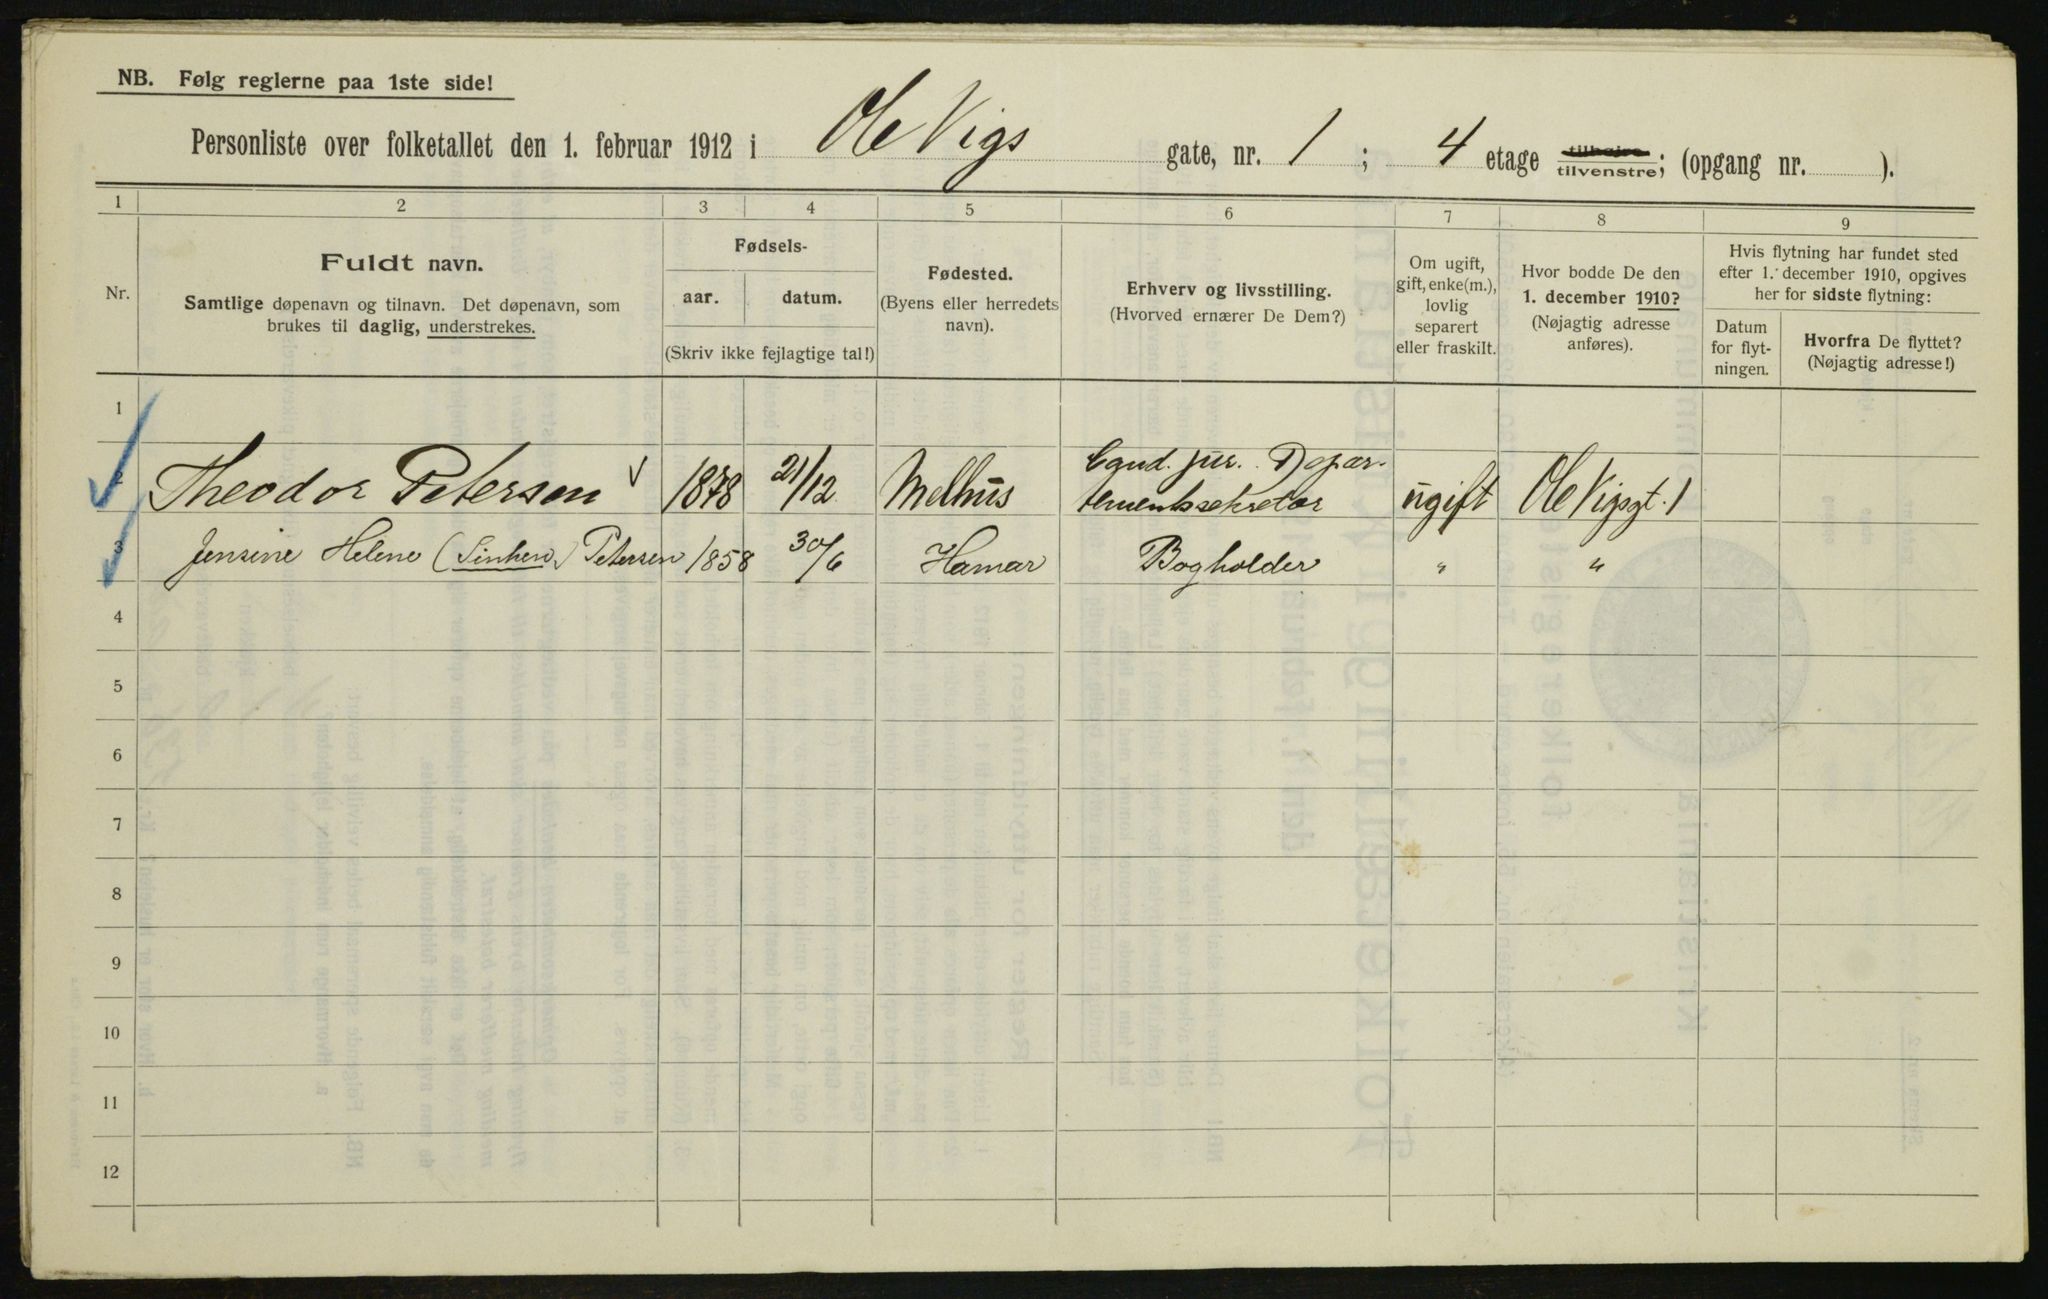 NB. Følg reglerne paa 1ste side!
Personliste over folketallet den 1. februar 1912 i Ole Vigs gate, nr. 1 ; 4 etage tilhøjre tilvenstre; (opgang nr. ).
1 2 3 4 5 6 7 8 9
Nr.
Fuldt navn.
Samtlige døpenavn og tilnavn. Det døpenavn, som
brukes til daglig, understrekes.
Fødsels-
aar. datum.
(Skriv ikke fejlagtige tal!)
Fødested.
(Byens eller herredets
navn).
Erhverv og livsstilling.
(Hvorved ernærer De Dem?)
Om ugift,
gift, enke(m.),
lovlig
separert
eller fraskilt.
Hvor bodde De den
1. december 1910?
(Nøjagtig adresse
anføres).
Hvis flytning har fundet sted
efter 1. december 1910, opgives
her for sidste flytning:
Datum
for flyt-
ningen.
Hvorfra De flyttet?
(Nøjagtig adresse!)
1
2 Theodor Petersen 1878 21/12 Melhus Cand. jur. Depar-
tementssekretær ugift Ole Vigsgt. 1
3 Jensine Helene Petersen 1858 30/6 Hamar Bogholder " "
4
5
6
7
8
9
10
11
12